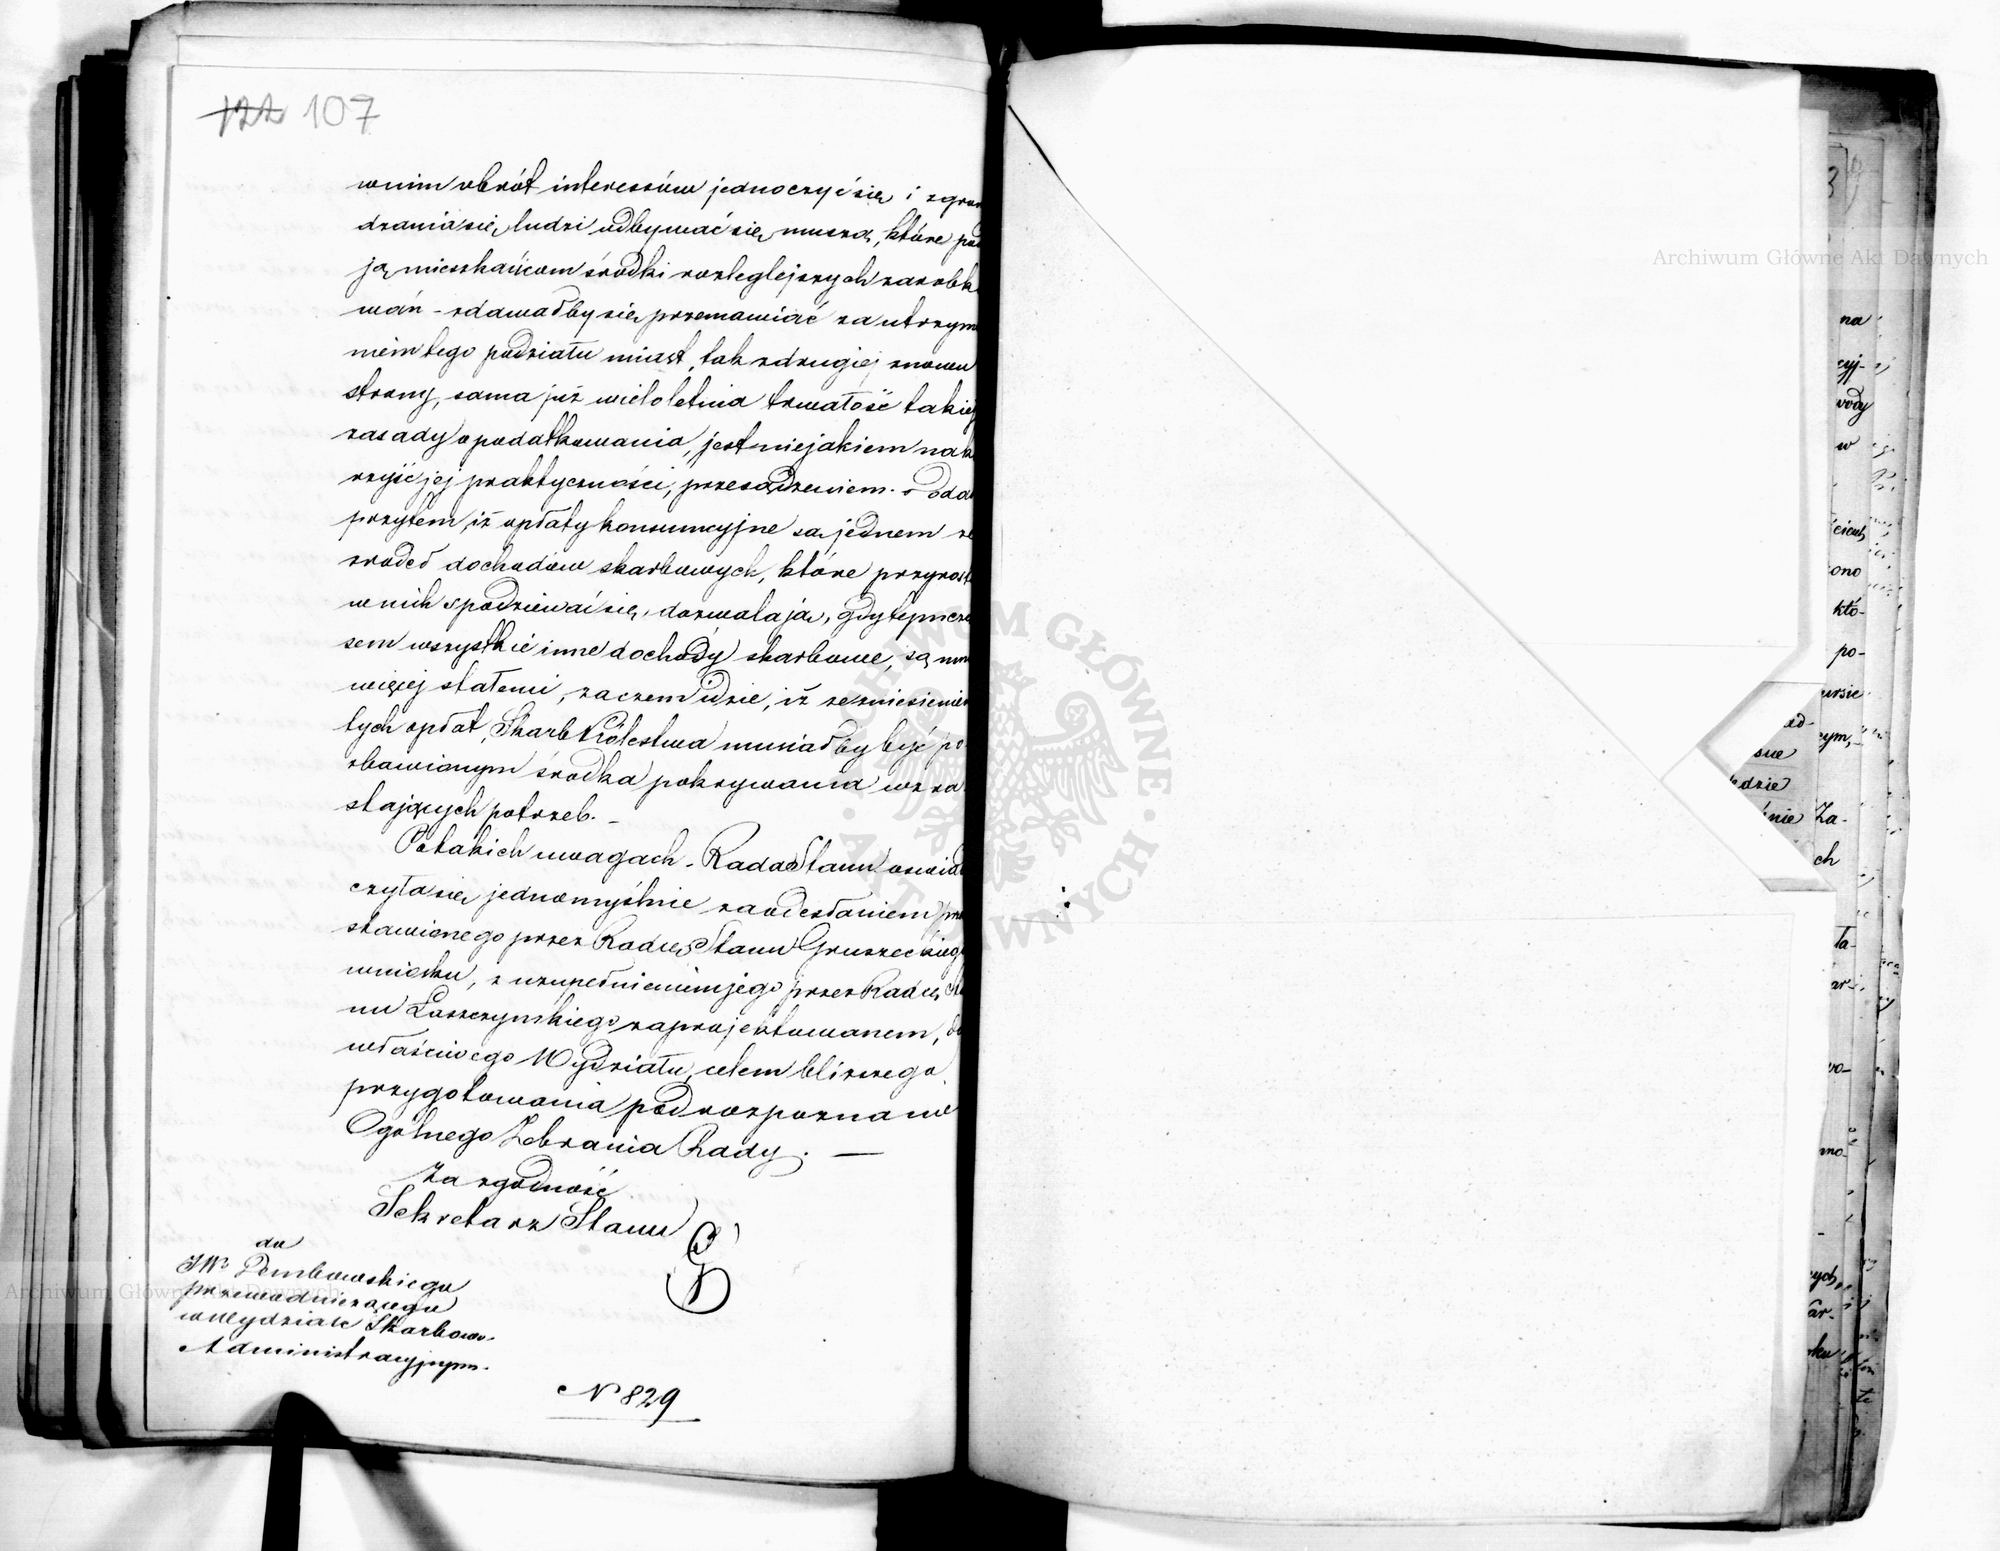 122 107
w nim obrót interessów jednoczyć się i zgro
dzania się, ludzi odbywać się muszą, które po
ją mieszkańcom środki rozleglejszych zarobko
wań - zdawałby się przemawiać za utrzyma
niem tego podziału miast, tak z drugiej znowu
strony, sama już wieloletnia trwałość takiej
zasady opodatkowania, jest niejakiem na ko
rzyść jej praktyczności, przesądzeniem. - Doda
przytem, iż opłaty konsumcyjne są jednem ze
źródeł dochodów skarbowych, które przyrost
w nich spodziewać się, dozwalają, gdy tymcza
sem wszystkie inne dochody skarbowe, są mni
więcej stałemi, zaczem idzie, iż ze zniesieniem
tych opłat, Skarb Królestwa musiałby być po
zbawionym środka pokrywania wzra
stających potrzeb. _
Po takich uwagach - Rada Stanu oświad
czyła się jednomyślnie za odesłaniem prze
stawionego przez Radcę Stanu Gruszeckiego
wniosku, z uzupełnieniem jego przez Radcę Sta
nu Łaszczyńskiego zaprojektowanem, do
właściwego Wydziału, celem bliższego
przygotowania pod rozpoznanie
Ogólnego Zebrania Rady. —
Za zgodność
Sekretarz Stanu
do
JW° Dembowskiego
przewodniczącego
w Wydziale Skarbowo-
Administracyjnym.
N 829
Archiwum Główne Akt Dawnych
Archiwum Główne Akt Dawnych
ARCHIWUM GŁÓWNE AKT DAWNYCH
na
cyj-
wody
w
ono
któ-
po-
ursie
cym,
sue
dzie
nie
Za-
ch
ła-
ar-
wo-
mo-
ych
ar-
ku